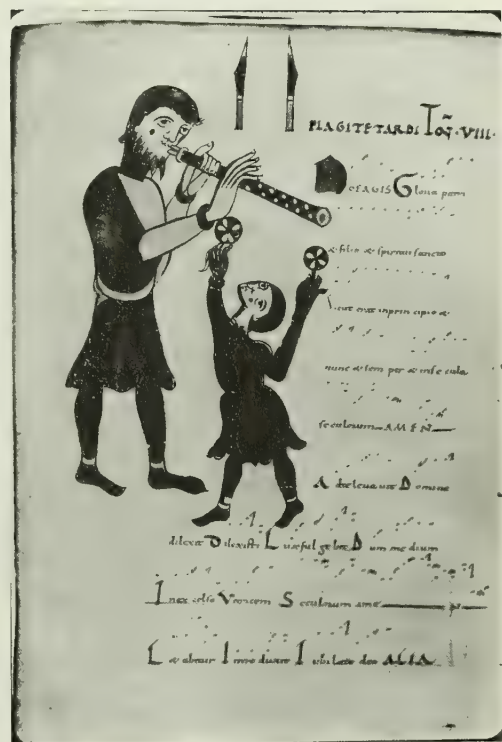 PLAGI TETARDI Toɳ · VIII ·
NOEAGIS Gloria patri
& filio & spiritui sancto
Sicut erat in principio &
nunc & sem per & in se cula
seculorum AMEN
Ad te leuaui Domine
dilexit Dilexisti Lux fulgebit Dum medium
In ex celso Vocem Seculorum amen
L & abitur Intro duxit Iubilate deo ALIA